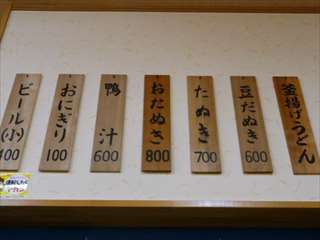 釜揚げうどん
豆だぬき
600
たぬき
700
おだぬき
800
鴨汁
600
おにぎり
100
ビール(小)
400